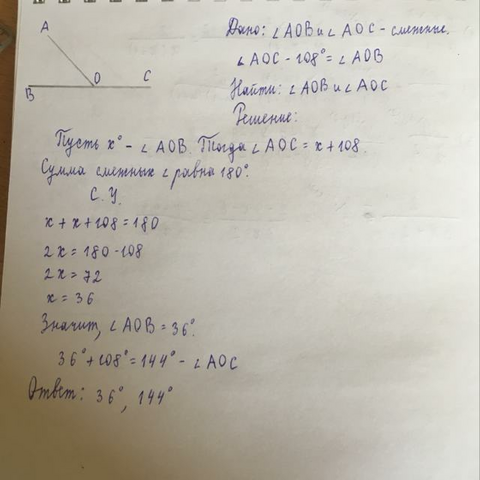 A
B
O
C
Дано: ∠AOB и ∠AOC - смежные.
∠AOC - 108° = ∠AOB
Найти: ∠AOB и ∠AOC
Решение:
Пусть x° - ∠AOB. Тогда ∠AOC = x + 108.
Сумма смежных ∠ равна 180°.
С. У.
x + x + 108 = 180
2x = 180 - 108
2x = 72
x = 36
Значит, ∠AOB = 36°.
36° + 108° = 144° - ∠AOC
Ответ: 36°, 144°